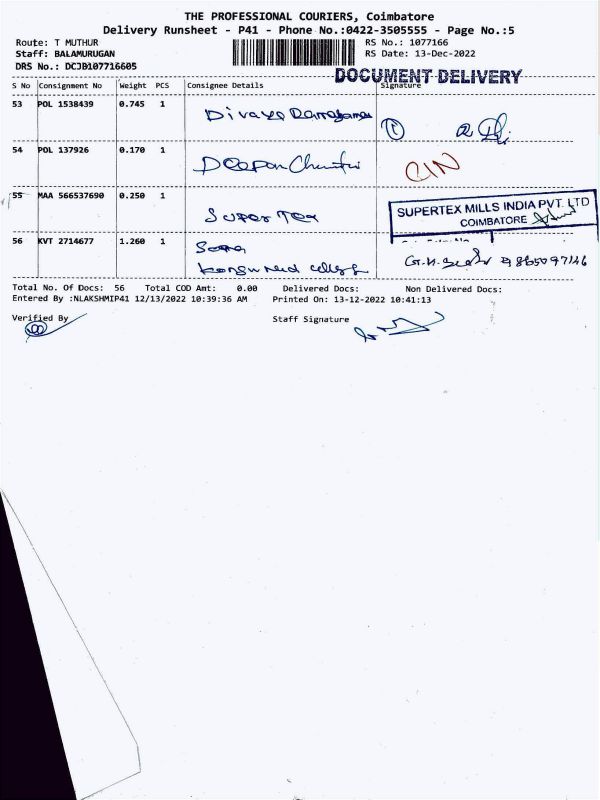 THE PROFESSIONAL COURIERS, Coimbatore
Delivery Runsheet - P41 - Phone No.:0422-3505555 - Page No.:5
Route: T MUTHUR RS No.: 1077166
Staff: BALAMURUGAN RS Date: 13-Dec-2022
DRS No.: DCJB107716605
DOCUMENT DELIVERY
S No Consignment No Weight PCS Consignee Details Signature
53 POL 1538439 0.745 1
54 POL 137926 0.170 1 Deepan
55 MAA 566537690 0.250 1 Super Tex
SUPERTEX MILLS INDIA PVT. LTD
COIMBATORE
56 KVT 2714677 1.260 1
Total No. Of Docs: 56 Total COD Amt: 0.00 Delivered Docs: Non Delivered Docs:
Entered By :NLAKSHMIP41 12/13/2022 10:39:36 AM Printed On: 13-12-2022 10:41:13
Verified By Staff Signature